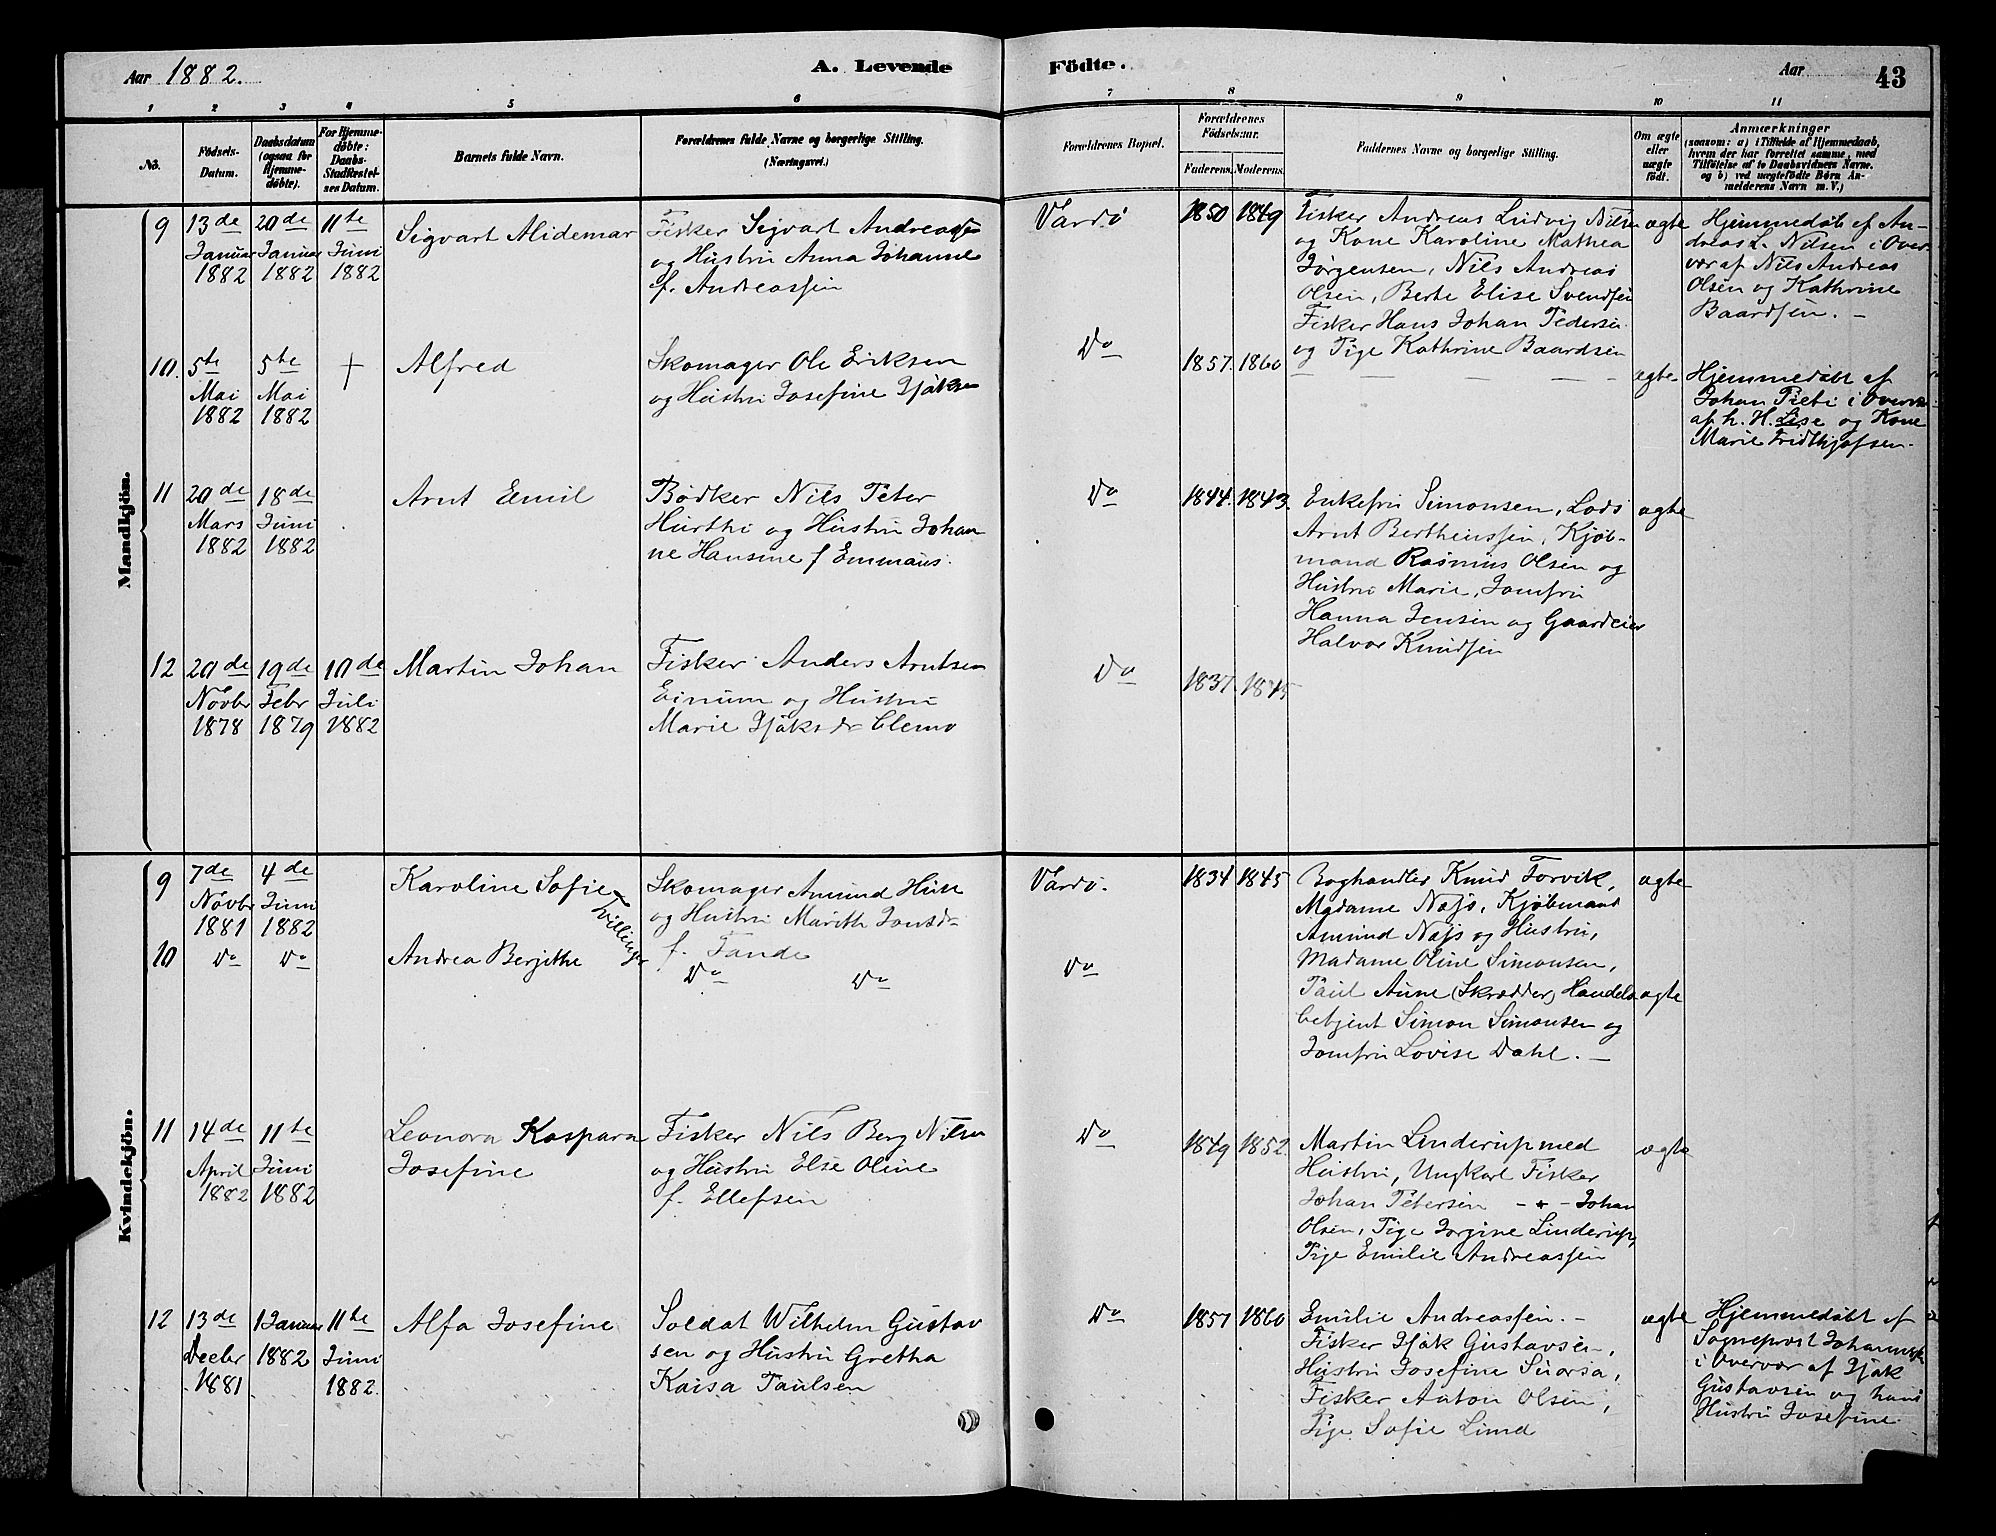 Aar 1882.
A. Levende Födte.
Aar 43
1 2 3 4 5 6 7 8 9 10 11
No.
Födsels-Datum.
Daabsdatum (ogsaa for Hjemmedöbte).
For Hjemmedöbte: Daabs-Stadfæstelses Datum.
Barnets fulde Navn.
Forældrenes fulde Navne og borgerlige Stilling. (Næringsvei.)
Forældrenes Bopæl.
Forældrenes Födselsaar.
Faderens. Moderens.
Faddernes Navne og borgerlige Stilling.
Om ægte eller uægte födt.
Anmærkninger
(saasom: a) i Tilfælde af Hjemmedaab, hvem der har forrettet samme, med Tilföielse af to Daabsvidners Navne. og b) ved uægtefödte Börn Anmelderens Navn m.V.)
Mandkjön.
9 13de Januar 1882
20de Januar 1882
11te Juni 1882
Sigvart Alidemar
Fisker Sigvart Andreassen
og Hustru Anna Johanne
f. Andreassen
Vardø
1850 1849
Fisker Andreas Ludvig Nilsen
og Kone Karoline Mathea
Jørgensen, Nils Andreas
Olsen, Berte Elise Svendsen
Fisker Hans Johan Pedersen
og Pige Kathrine Baardsen
ægte
Hjemmedøbt af An-
dreas L. Nilsen i Over-
vær af Nils Andreas
Olsen og Kathrine
Baardsen. –
10. 5te Mai 1882
5te Mai 1882
+
Alfred
Skomager Ole Eriksen
og Hustru Josefine Isaksen
Do
1857. 1860
— — — — —
ægte
Hjemmedøbt af
Johan Pieti i Overvær
af h. H. Lise og Kone
Marie Fridthjofsen.
11 20de Mars 1882
18de Juni 1882
Arnt Emil
Bødker Nils Peter
Hurthi og Hustru Johan
ne Hansine f Emmaus.
Do
1844. 1843.
Enkefru Simonsen, Lods
Arnt Bertheussen, Kjøb-
mand Rasmus Olsen og
Hustru Marie, Jomfru
Hanna Jensen og Gaardeier
Halvor Knudsen
ægte
12 20de Novbr 1878
19de Febr 1879
10de Juli 1882
Martin Johan
Fisker Anders Arntsen
Einum og Hustru
Marie Isaksdr Clemo
Do
1837. 1845
Kvindekjön.
9 7de Novbr 1881
4de Juni 1882
Karoline Sofie
Tvillinger
Skomager Amund Huse
og Hustru Marith Jonsdr
f. Tande
Vardø.
1834 1845
Boghandler Knud Torvik,
Madame Næjs, Kjøbmand
Amund Næjs og Hustru,
Madame Oline Simonsen,
Paul Aune (Skrædder) Handels
betjent Simon Simonsen og
Jomfru Lovise Dahl. –
ægte
10 Do Do
Andrea Berjithe
Do Do
Do
ægte
11 14de April 1882
11te Juni 1882
Leonora Kaspara
Josefine
Fisker Nils Berg Nilsen
og Hustru Else Oline
f. Ellefsen
Do
1849 1852.
Martin Linderup med
Hustru, Ungkarl Fisker
Johan Petersen -„- Johan
Olsen, Pige Jorgine Linderup,
Pige Emilie Andreassen
ægte
12 13de Decbr 1881
1 Januar 1882
11te Juni 1882.
Alfa Josefine
Soldat Wilhelm Gustav
sen og Hustru Gretha
Kaisa Paulsen
Do
1857 1860
Emilie Andreassen. –
Fisker Isak Gustavsen,
Hustru Josefine Suorsa,
Fisker Anton Olsen,
Pige Sofie Lund
ægte
Hjemmedøbt af
Sognepræst Johannsen
i Overvær af Isak
Gustavsen og hans
Hustru Josefine